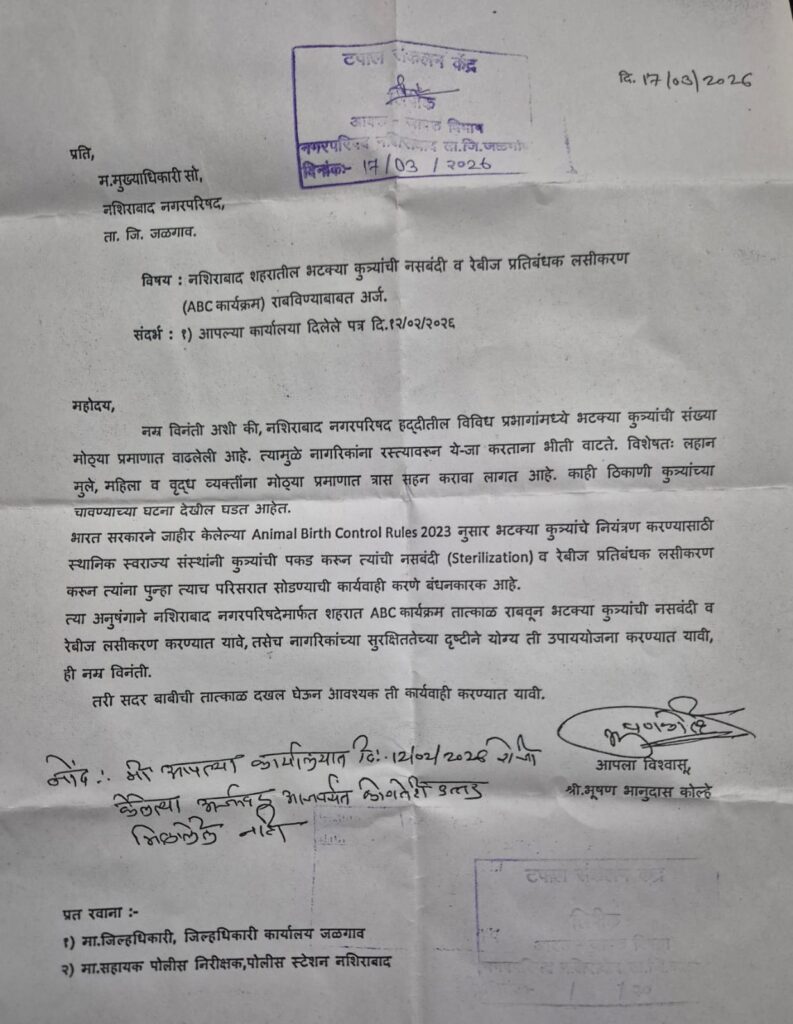 टपाल संकलन केंद्र
लिपीक
आवक - जावक विभाग
नगरपरिषद नशिराबाद ता.जि.जळगांव
दिनांक:- 17/03/2026
दि. 17/03/2026
प्रति,
म.मुख्याधिकारी सो,
नशिराबाद नगरपरिषद,
ता. जि. जळगाव.
विषय : नशिराबाद शहरातील भटक्या कुत्र्यांची नसबंदी व रेबीज प्रतिबंधक लसीकरण
(ABC कार्यक्रम) राबविण्याबाबत अर्ज.
संदर्भ : १) आपल्या कार्यालया दिलेले पत्र दि.१२/०२/२०२६
महोदय,
नम्र विनंती अशी की, नशिराबाद नगरपरिषद हद्दीतील विविध प्रभागांमध्ये भटक्या कुत्र्यांची संख्या
मोठ्या प्रमाणात वाढलेली आहे. त्यामुळे नागरिकांना रस्त्यावरून ये-जा करताना भीती वाटते. विशेषतः लहान
मुले, महिला व वृद्ध व्यक्तींना मोठ्या प्रमाणात त्रास सहन करावा लागत आहे. काही ठिकाणी कुत्र्यांच्या
चावण्याच्या घटना देखील घडत आहेत.
भारत सरकारने जाहीर केलेल्या Animal Birth Control Rules 2023 नुसार भटक्या कुत्र्यांचे नियंत्रण करण्यासाठी
स्थानिक स्वराज्य संस्थांनी कुत्र्यांची पकड करून त्यांची नसबंदी (Sterilization) व रेबीज प्रतिबंधक लसीकरण
करून त्यांना पुन्हा त्याच परिसरात सोडण्याची कार्यवाही करणे बंधनकारक आहे.
त्या अनुषंगाने नशिराबाद नगरपरिषदेमार्फत शहरात ABC कार्यक्रम तात्काळ राबवून भटक्या कुत्र्यांची नसबंदी व
रेबीज लसीकरण करण्यात यावे, तसेच नागरिकांच्या सुरक्षिततेच्या दृष्टीने योग्य ती उपाययोजना करण्यात यावी,
ही नम्र विनंती.
तरी सदर बाबीची तात्काळ दखल घेऊन आवश्यक ती कार्यवाही करण्यात यावी.
आपला विश्वासू,
श्री.भूषण भानुदास कोल्हे
नोंद :. मी आपल्या कार्यालयात दि:-12/02/2026 रोजी
केलेल्या अर्जासह आजपर्यंत कोणतेही उत्तर
मिळालेले नाही
प्रत रवाना :-
१) मा.जिल्हधिकारी, जिल्हधिकारी कार्यालय जळगाव
२) मा.सहायक पोलीस निरीक्षक,पोलीस स्टेशन नशिराबाद
टपाल संकलन केंद्र
लिपीक